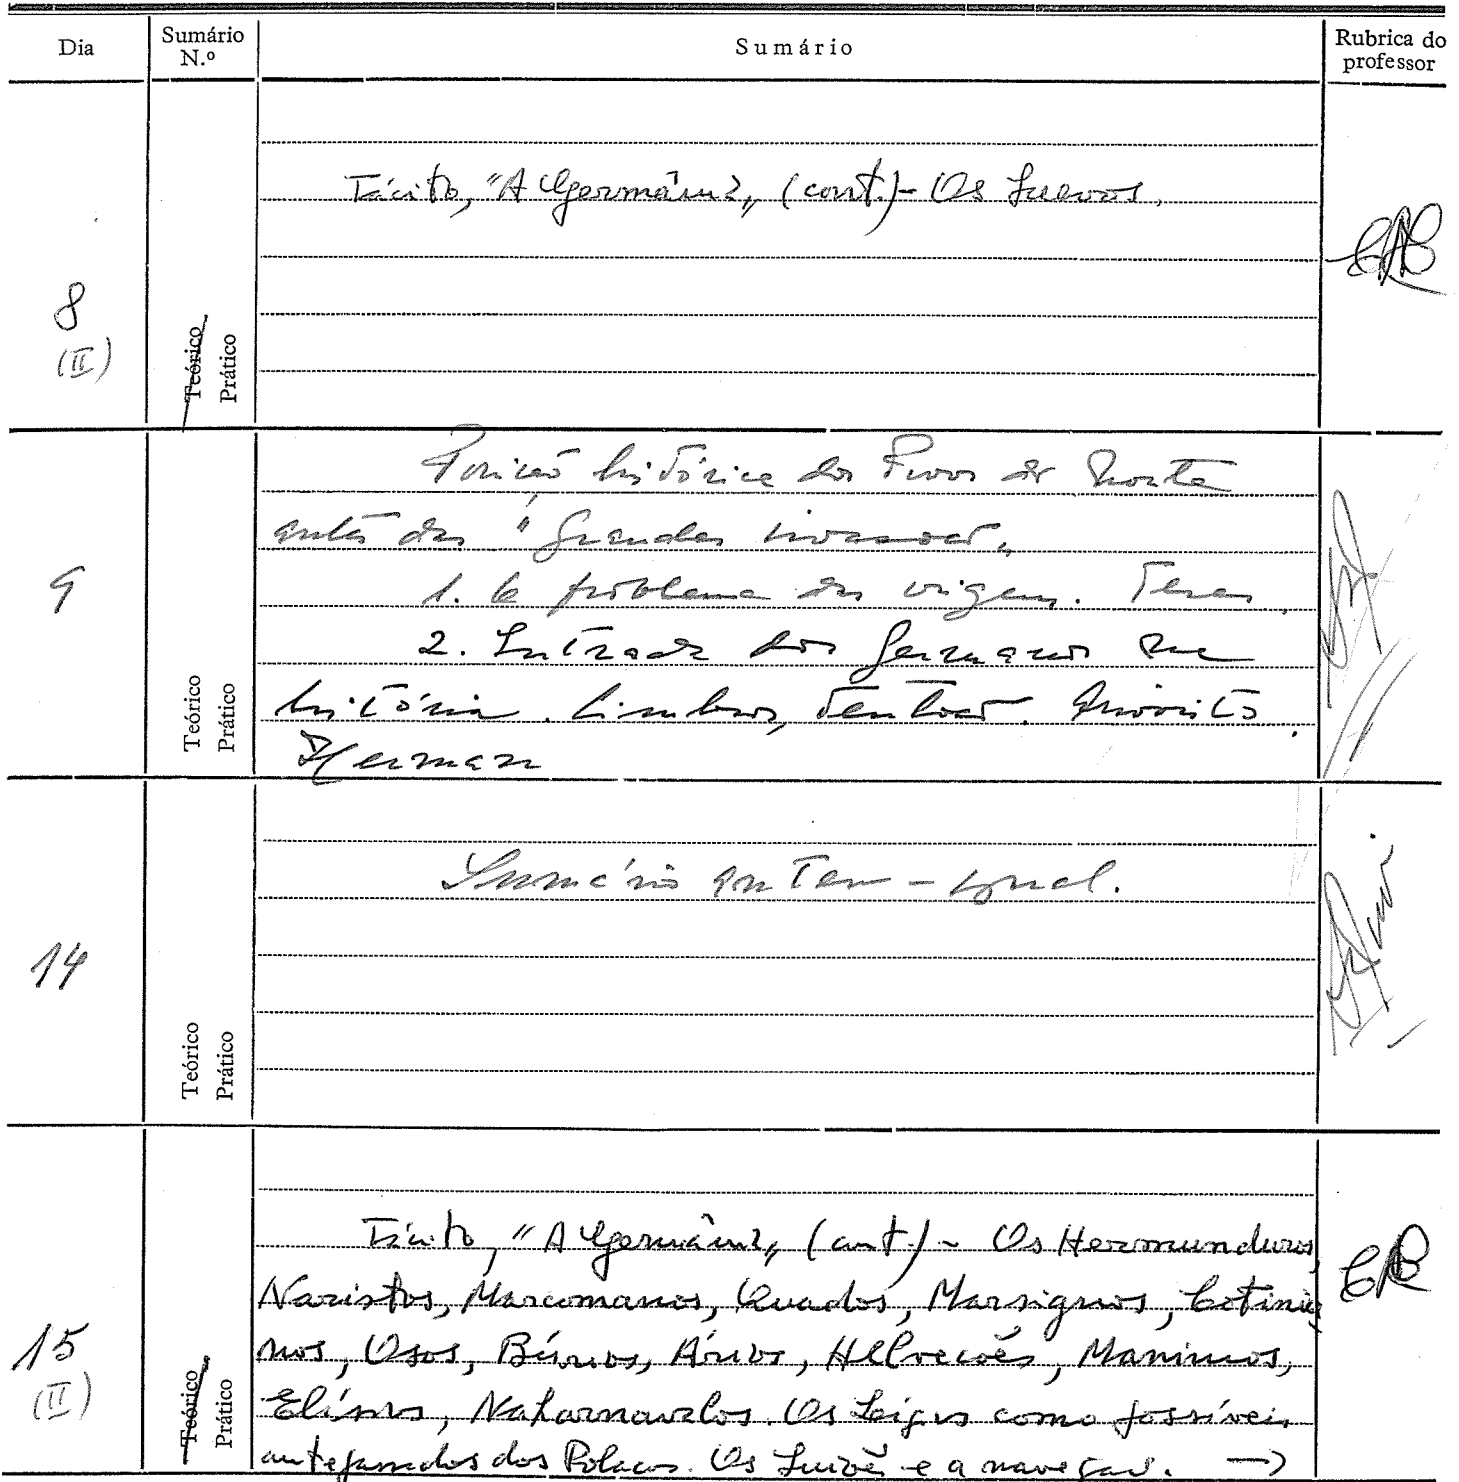 Dia
Sumário N.º
Sumário
Rubrica do professor
8
(II)
Teórico
Prático
Tácito, "A Germânia„ (cont.) - Os Suevos.
9
Teórico
Prático
Posição histórica dos Povos do Norte
antes das "grandes invasões„
1. O problema das origens. Teses.
2. Entrada dos Germanos na
história. Cimbros, Teutões. Ariovisto.
Herman
14
Teórico
Prático
Sumário ant.
15
(II)
Teórico
Prático
Tácito, "A Germânia„ (cont.) - Os Hermunduros,
Naristos, Marcomanos, Quados, Marsignos, Cotinia
nos, Osos, Búrios, Ários, Helvecões, Manimos,
Elísios, Naharnavalos. Os Lígios como possíveis
antepassados dos Polacos. Os Suiões e a navegação. →